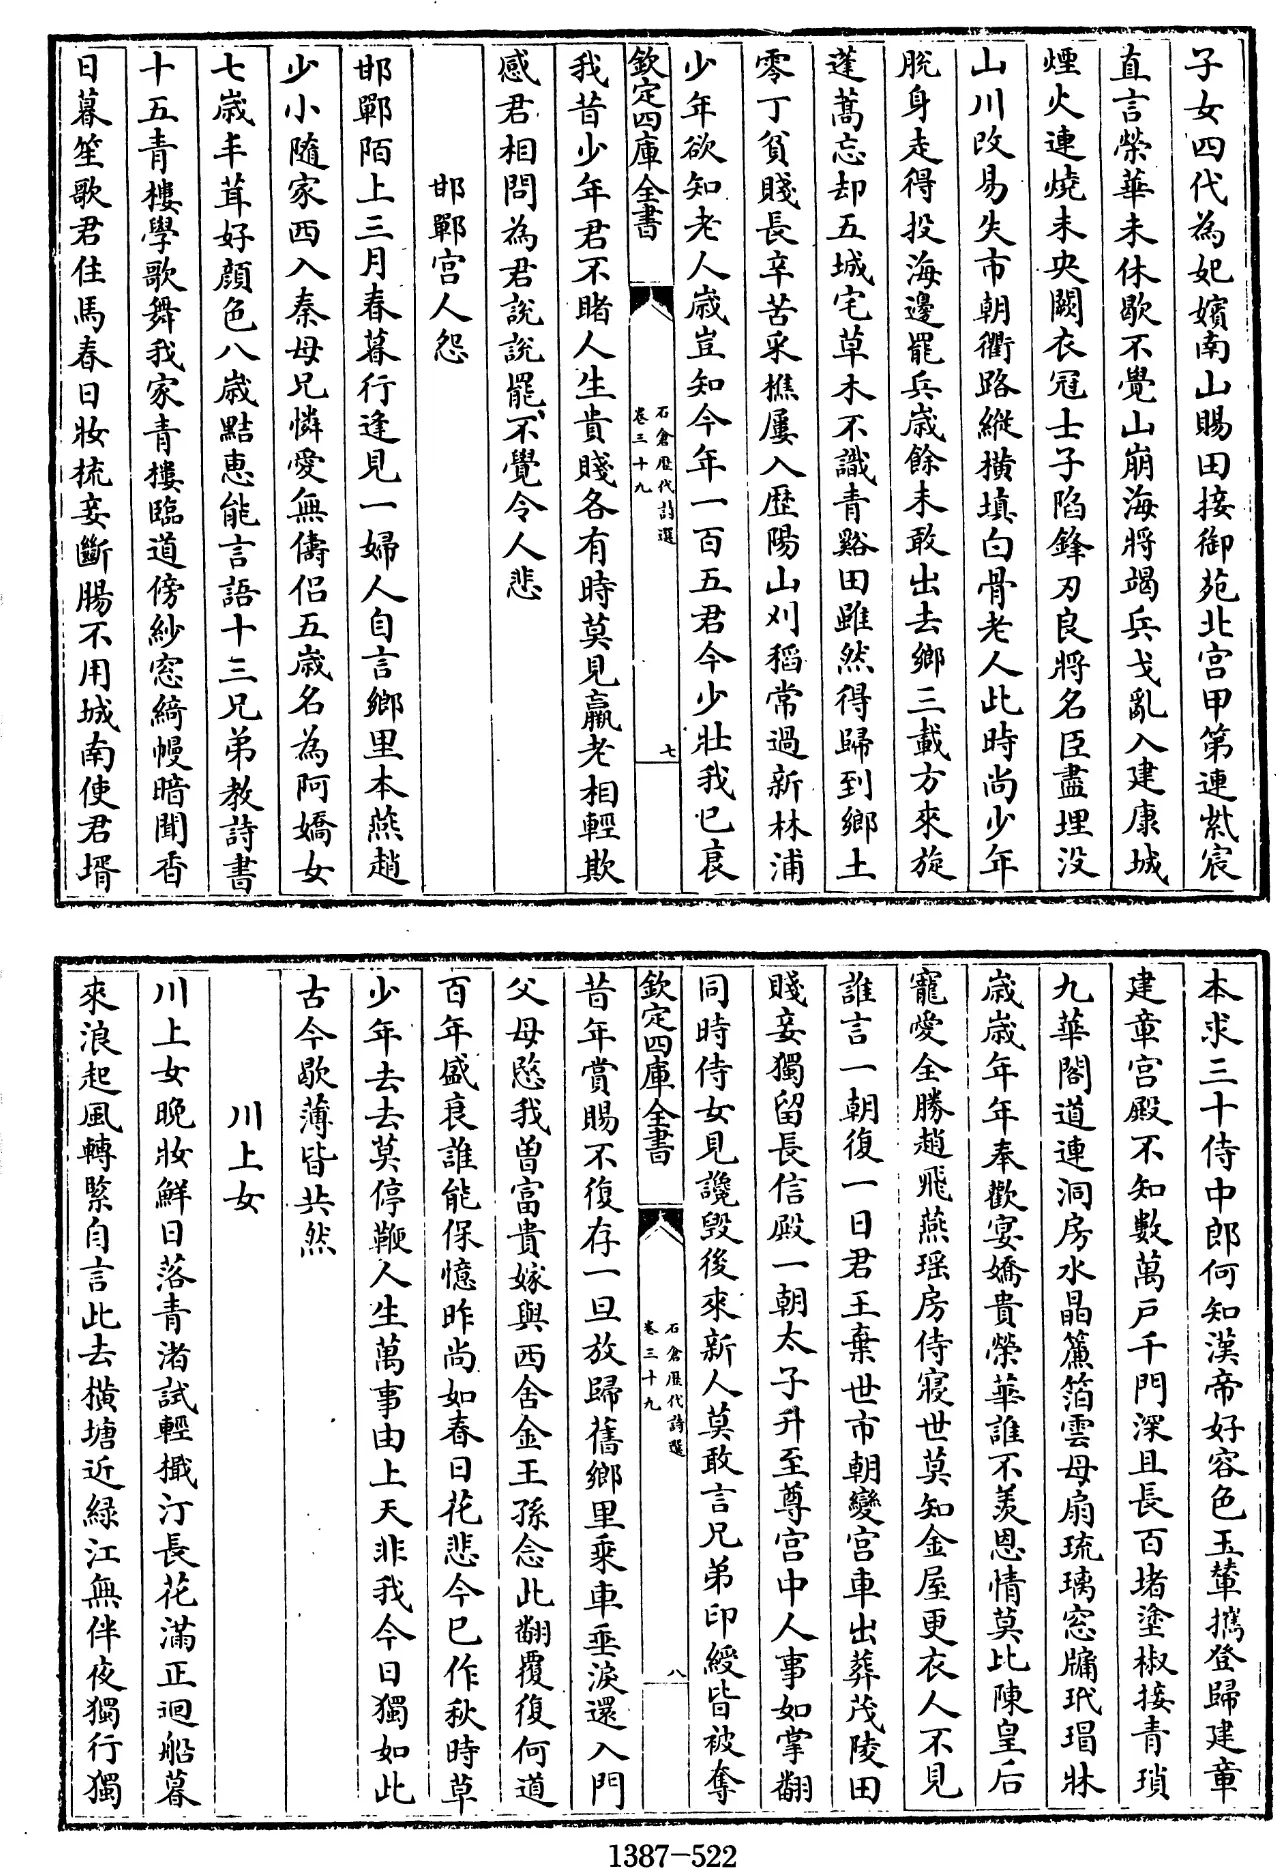 子女四代為妃嬪南山賜田接御苑北宮甲第連紫宸
直言榮華未休歇不覺山崩海將竭兵戈亂入建康城
煙火連燒未央闕衣冠士子陷鋒刃良將名臣盡埋没
山川改易失市朝衢路縱横填白骨老人此時尚少年
脱身走得投海邊罷兵歲餘未敢出去鄉三載方來旋
蓬蒿忘却五城宅草木不識青谿田雖然得歸到鄉土
零丁貧賤長辛苦采樵屢入歴陽山刈稻常過新林浦
少年欲知老人歲豈知今年一百五君今少壯我已衰
欽定四庫全書
石倉歴代詩選
卷三十九
七
我昔少年君不睹人生貴賤各有時莫見羸老相輕欺
感君相問為君説説罷不覺令人悲
邯鄲宮人怨
邯鄲陌上三月春暮行逢見一婦人自言鄉里本燕趙
少小隨家西入秦母兄憐愛無儔侣五歲名為阿嬌女
七歲丰茸好顔色八歲點惠能言語十三兄弟教詩書
十五青樓學歌舞我家青樓臨道傍紗窓綺幔暗聞香
日暮笙歌君住馬春日妝梳妾斷腸不用城南使君壻
本求三十侍中郎何知漢帝好容色玉輦攜登歸建章
建章宮殿不知數萬户千門深且長百堵塗椒接青瑣
九華閣道連洞房水晶簾箔雲母扇琉璃窓牖玳瑁牀
歲歲年年奉歡宴嬌貴榮華誰不羡恩情莫比陳皇后
寵愛全勝趙飛燕瑶房侍寢世莫知金屋更衣人不見
誰言一朝復一日君王棄世市朝變宮車出葬茂陵田
賤妾獨留長信殿一朝太子升至尊宮中人事如掌翻
同時侍女見讒毁後來新人莫敢言兄弟印綬皆被奪
欽定四庫全書
石倉歴代詩選
卷三十九
八
昔年賞賜不復存一旦放歸舊鄉里乘車垂淚還入門
父母愍我曾富貴嫁與西舍金王孫念此翻覆復何道
百年盛衰誰能保憶昨尚如春日花悲今已作秋時草
少年去去莫停鞭人生萬事由上天非我今日獨如此
古今歇薄皆共然
川上女
川上女晚妝鮮日落青渚試輕檝汀長花滿正迴船暮
來浪起風轉緊自言此去横塘近緑江無伴夜獨行獨
1387—522